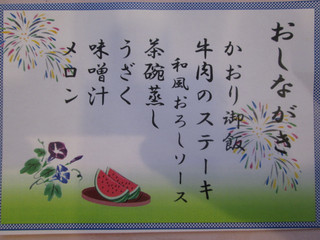 おしながき
かおり御飯
牛肉のステーキ
和風おろしソース
茶碗蒸し
うざく
味噌汁
メロン